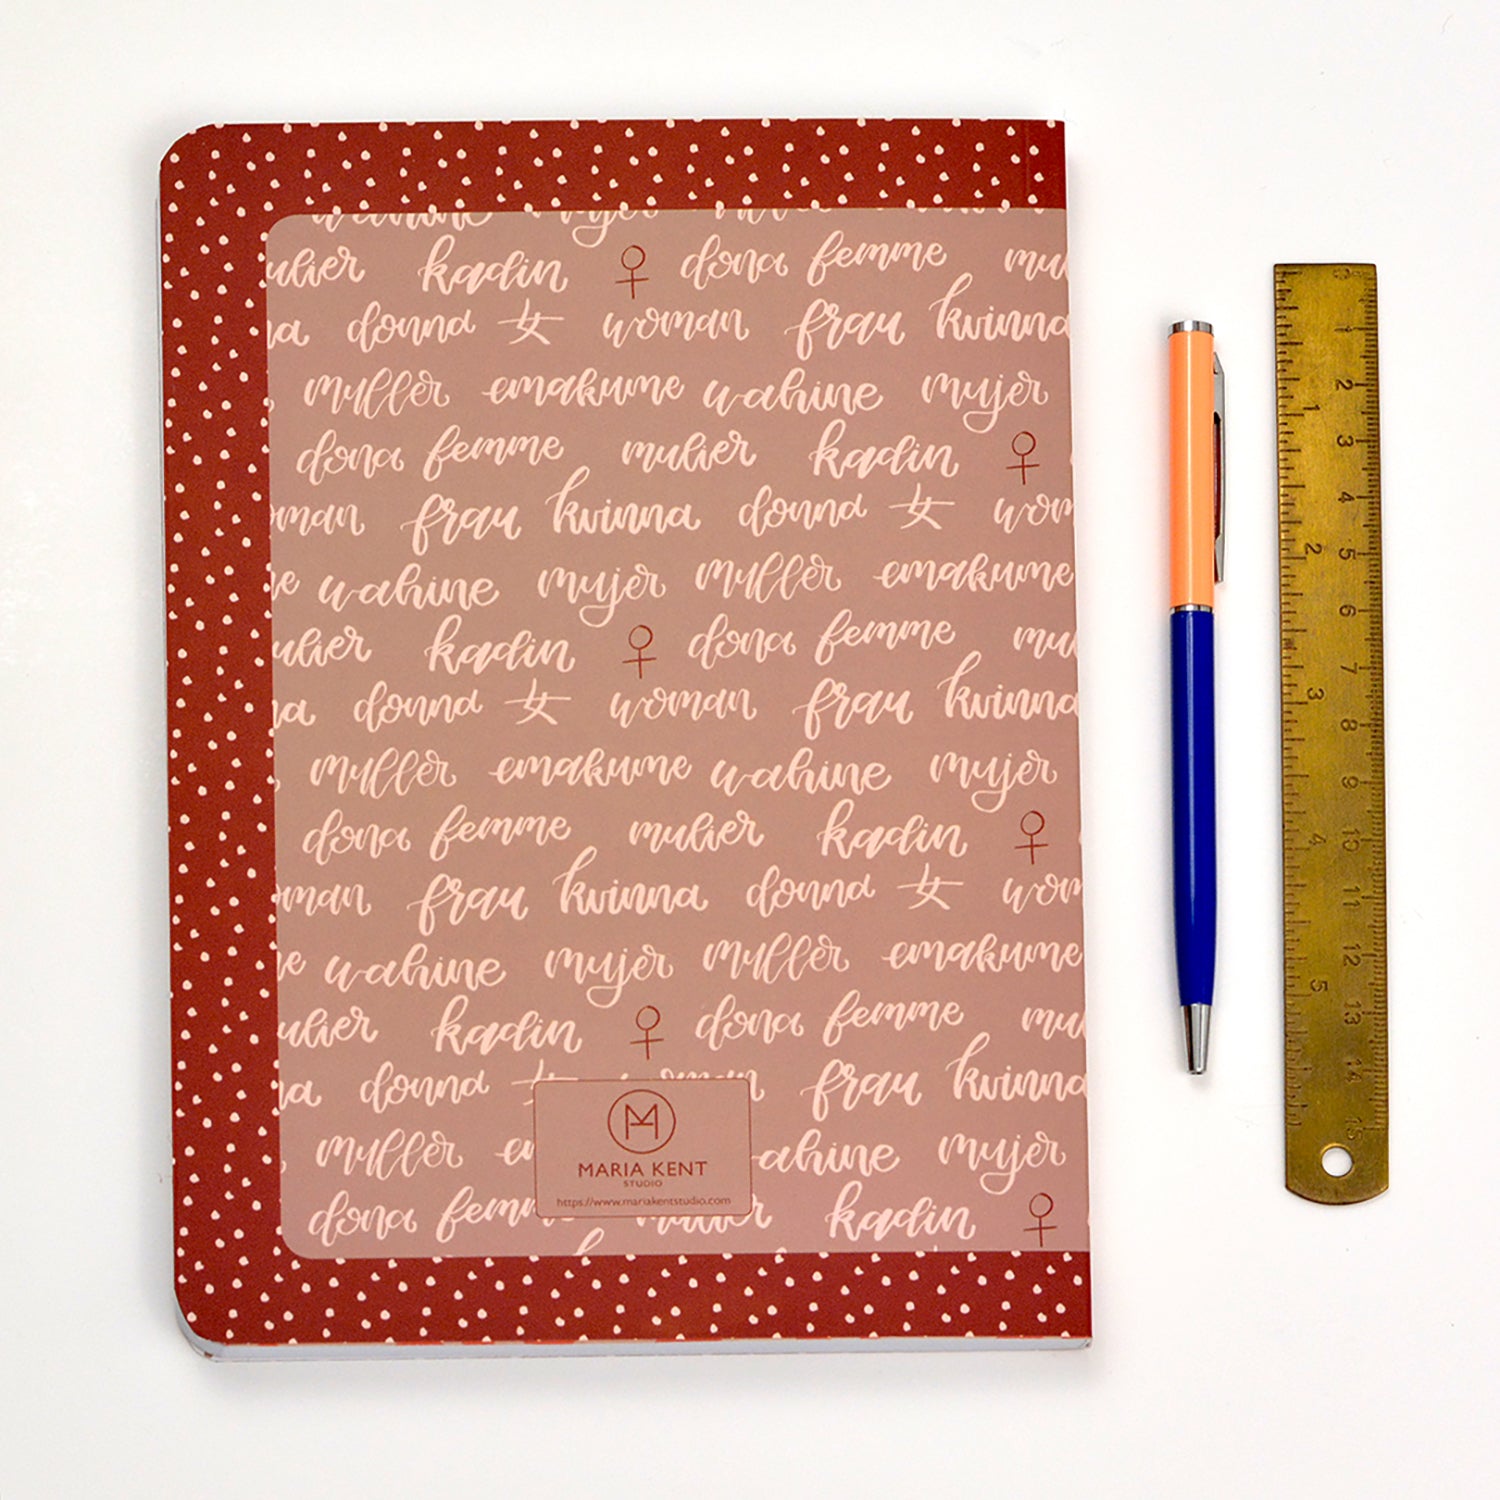 wahine mujer
mulier kadin ♀ dona femme mul
na donna 女 woman frau kvinna
muller emakume wahine mujer
dona femme mulier kadin ♀
oman frau kvinna donna 女 wom
e wahine mujer muller emakume
ulier kadin ♀ dona femme mul
na donna 女 woman frau kvinna
muller emakume wahine mujer
dona femme mulier kadin ♀
woman frau kvinna donna 女 wom
ne wahine mujer muller emakume
ulier kadin ♀ dona femme mul
na donna woman frau kvinna
muller em ahine mujer
dona femm mulier kadin ♀
MARIA KENT
STUDIO
https://www.mariakentstudio.com
0
1
2
3
4
5
6
7
8
9
10
11
12
13
14
15
1
2
3
4
5